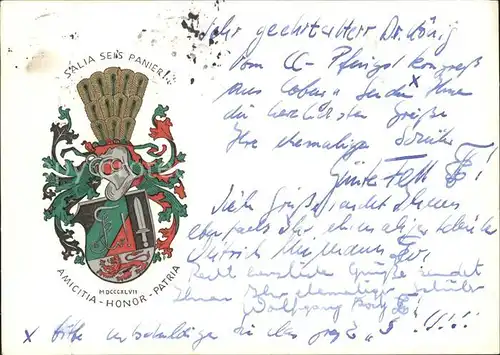 SALIA SEI'S PANIER!
AMICITIA - HONOR - PATRIA
MDCCCXLVII
Sehr geehrter Herr Dr. König
Vom CC-Pfingstkongreß
aus Coburg senden x Ihnen
die herzlichsten Grüße
Ihre ehemaligen Schüler
Günter Fett !
Viele Grüße sendet Ihnen
ebenfalls Ihr ehemaliger Schüler
Recht herzliche Grüße sendet
Ihnen Ihr ehemaliger Schüler
Wolfgang
x bitte entschuldigen Sie das große "I" !!!!